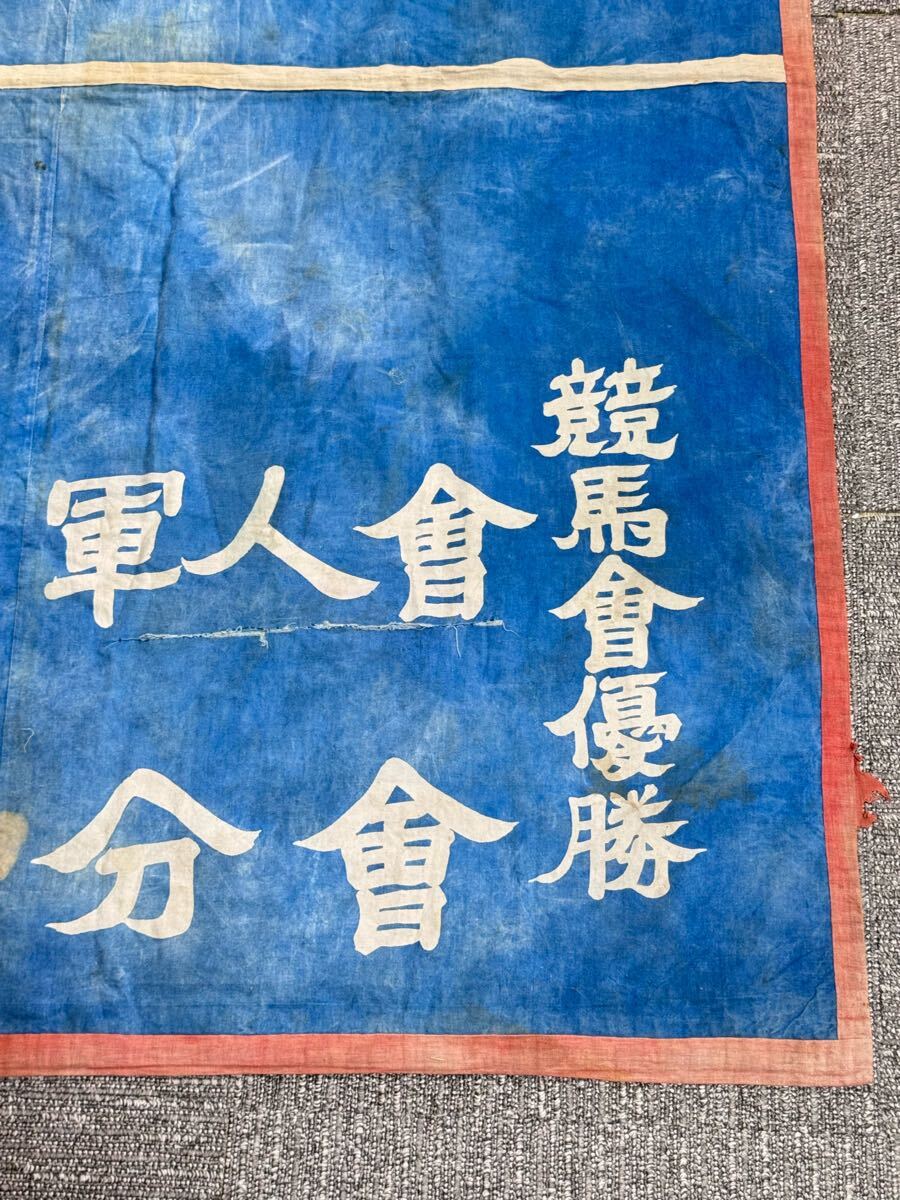 競馬會優勝
軍人會
分會